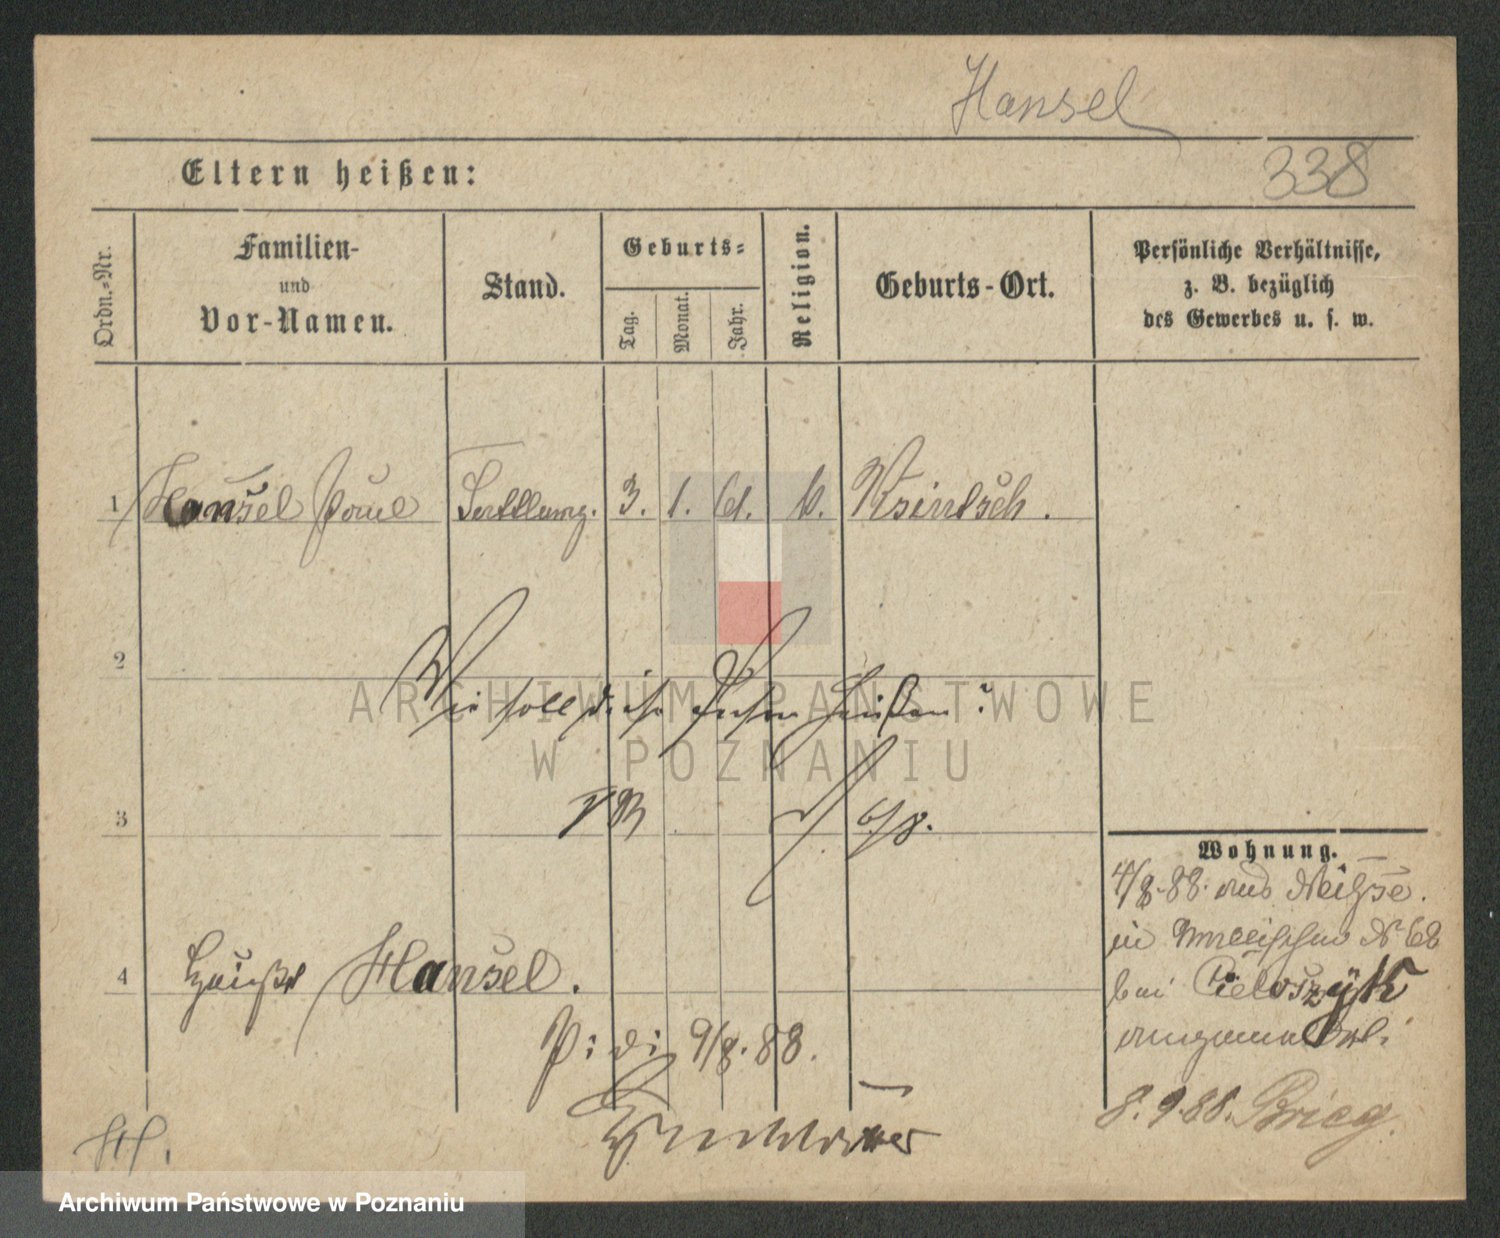 Hansel
338
Eltern heißen:
Ordn.-Nr.
Familien-
und
Vor-Namen.
Stand.
Geburts-
Tag.
Monat.
Jahr.
Religion.
Geburts-Ort.
Persönliche Verhältnisse,
z. B. bezüglich
des Gewerbes u. s. w.
1 Hansel Paul 3. 1. 61. k. Ksintsch.
2
Wie soll diese Person heißen?
6/8.
3
Wohnung.
4/8.88. aus Neisse.
in Wallischei N 68
bei Cieloszyk
angemeldet.
8.9.88. Brieg.
4 heißt Hansel.
P. d. 9/8.88.
H.
ARCHIWUM PAŃSTWOWE
W POZNANIU
Archiwum Państwowe w Poznaniu